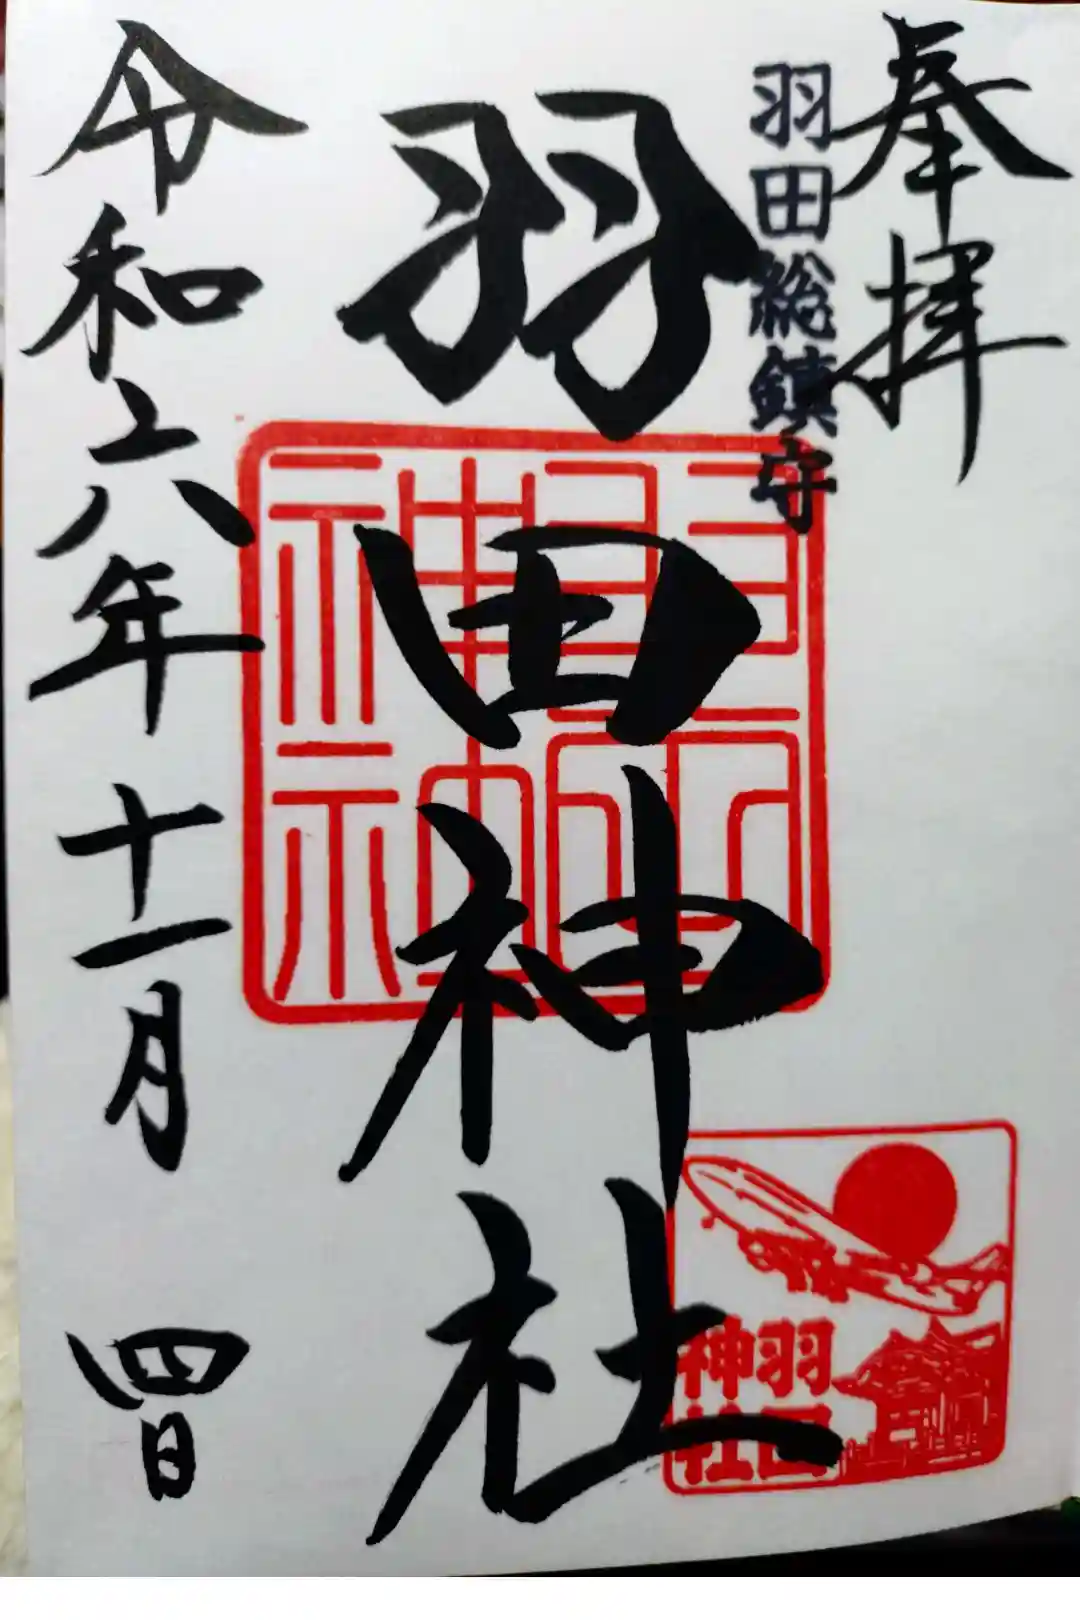 奉拝
羽田総鎮守
羽田神社
羽田
神社
羽田
神社
令和六年十一月四日